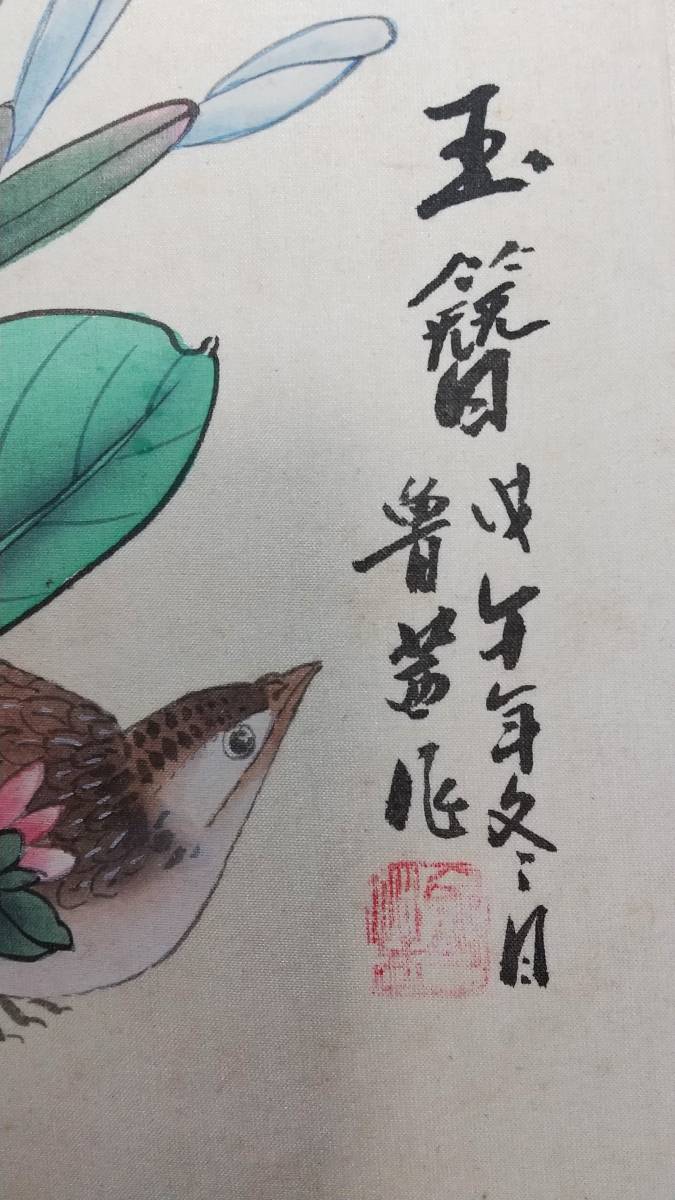 玉簪
戊午年冬月
魯茜作